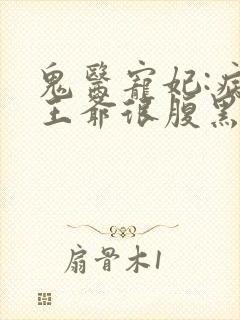 鬼醫寵妃:病
王爺很腹黑
扇骨木1